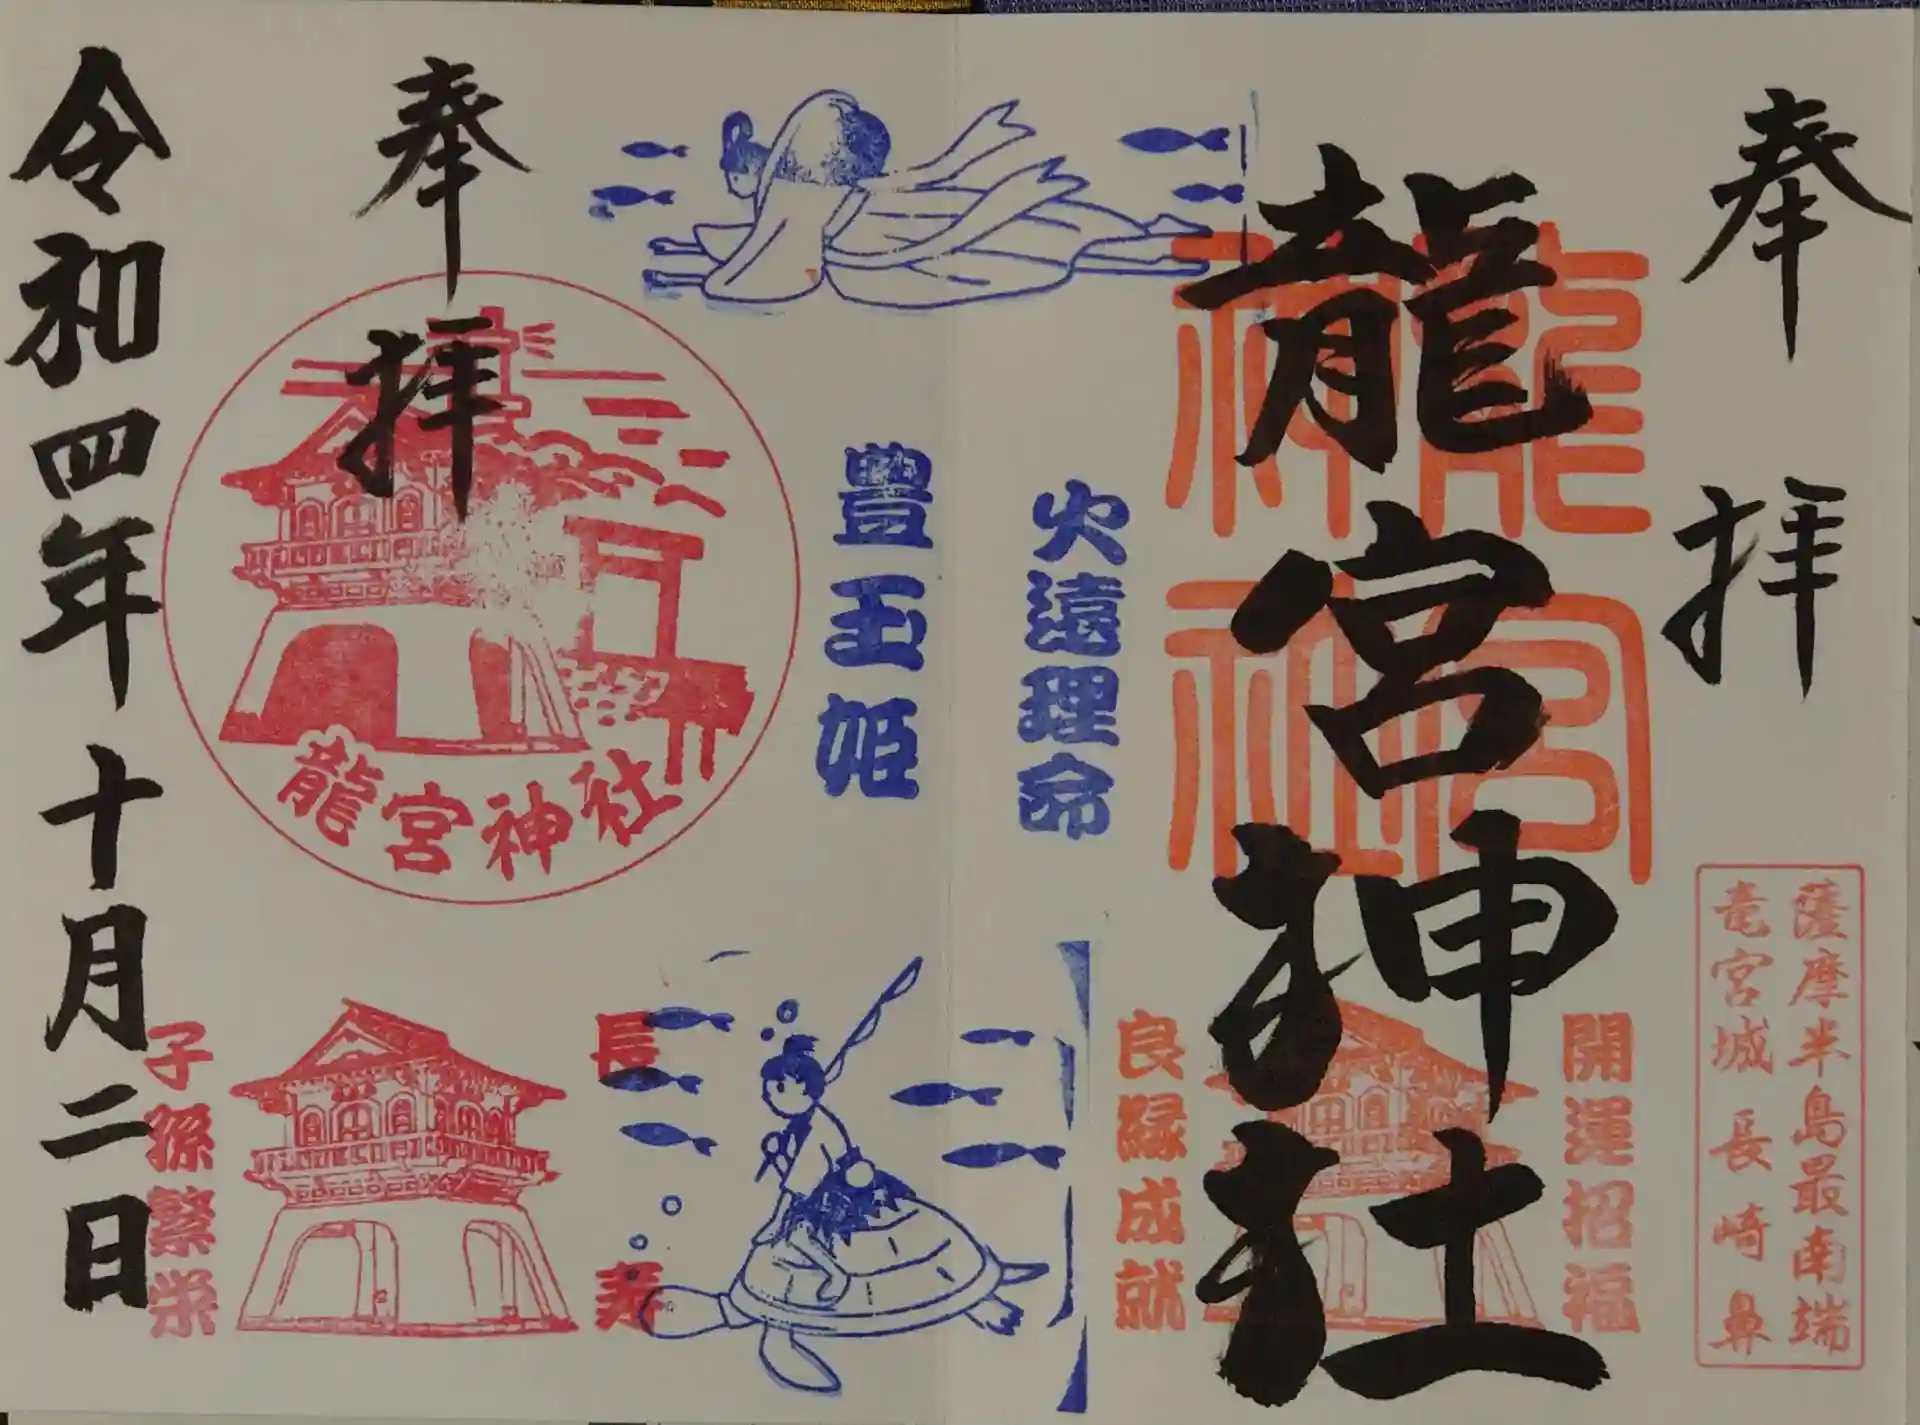 奉拝
薩摩半島最南端
竜宮城 長崎鼻
龍宮神社
龍宮
神社
開運招福
良縁成就
火遠理命
豊玉姫
長寿
奉拝
龍宮神社
子孫繁栄
令和四年十月二日